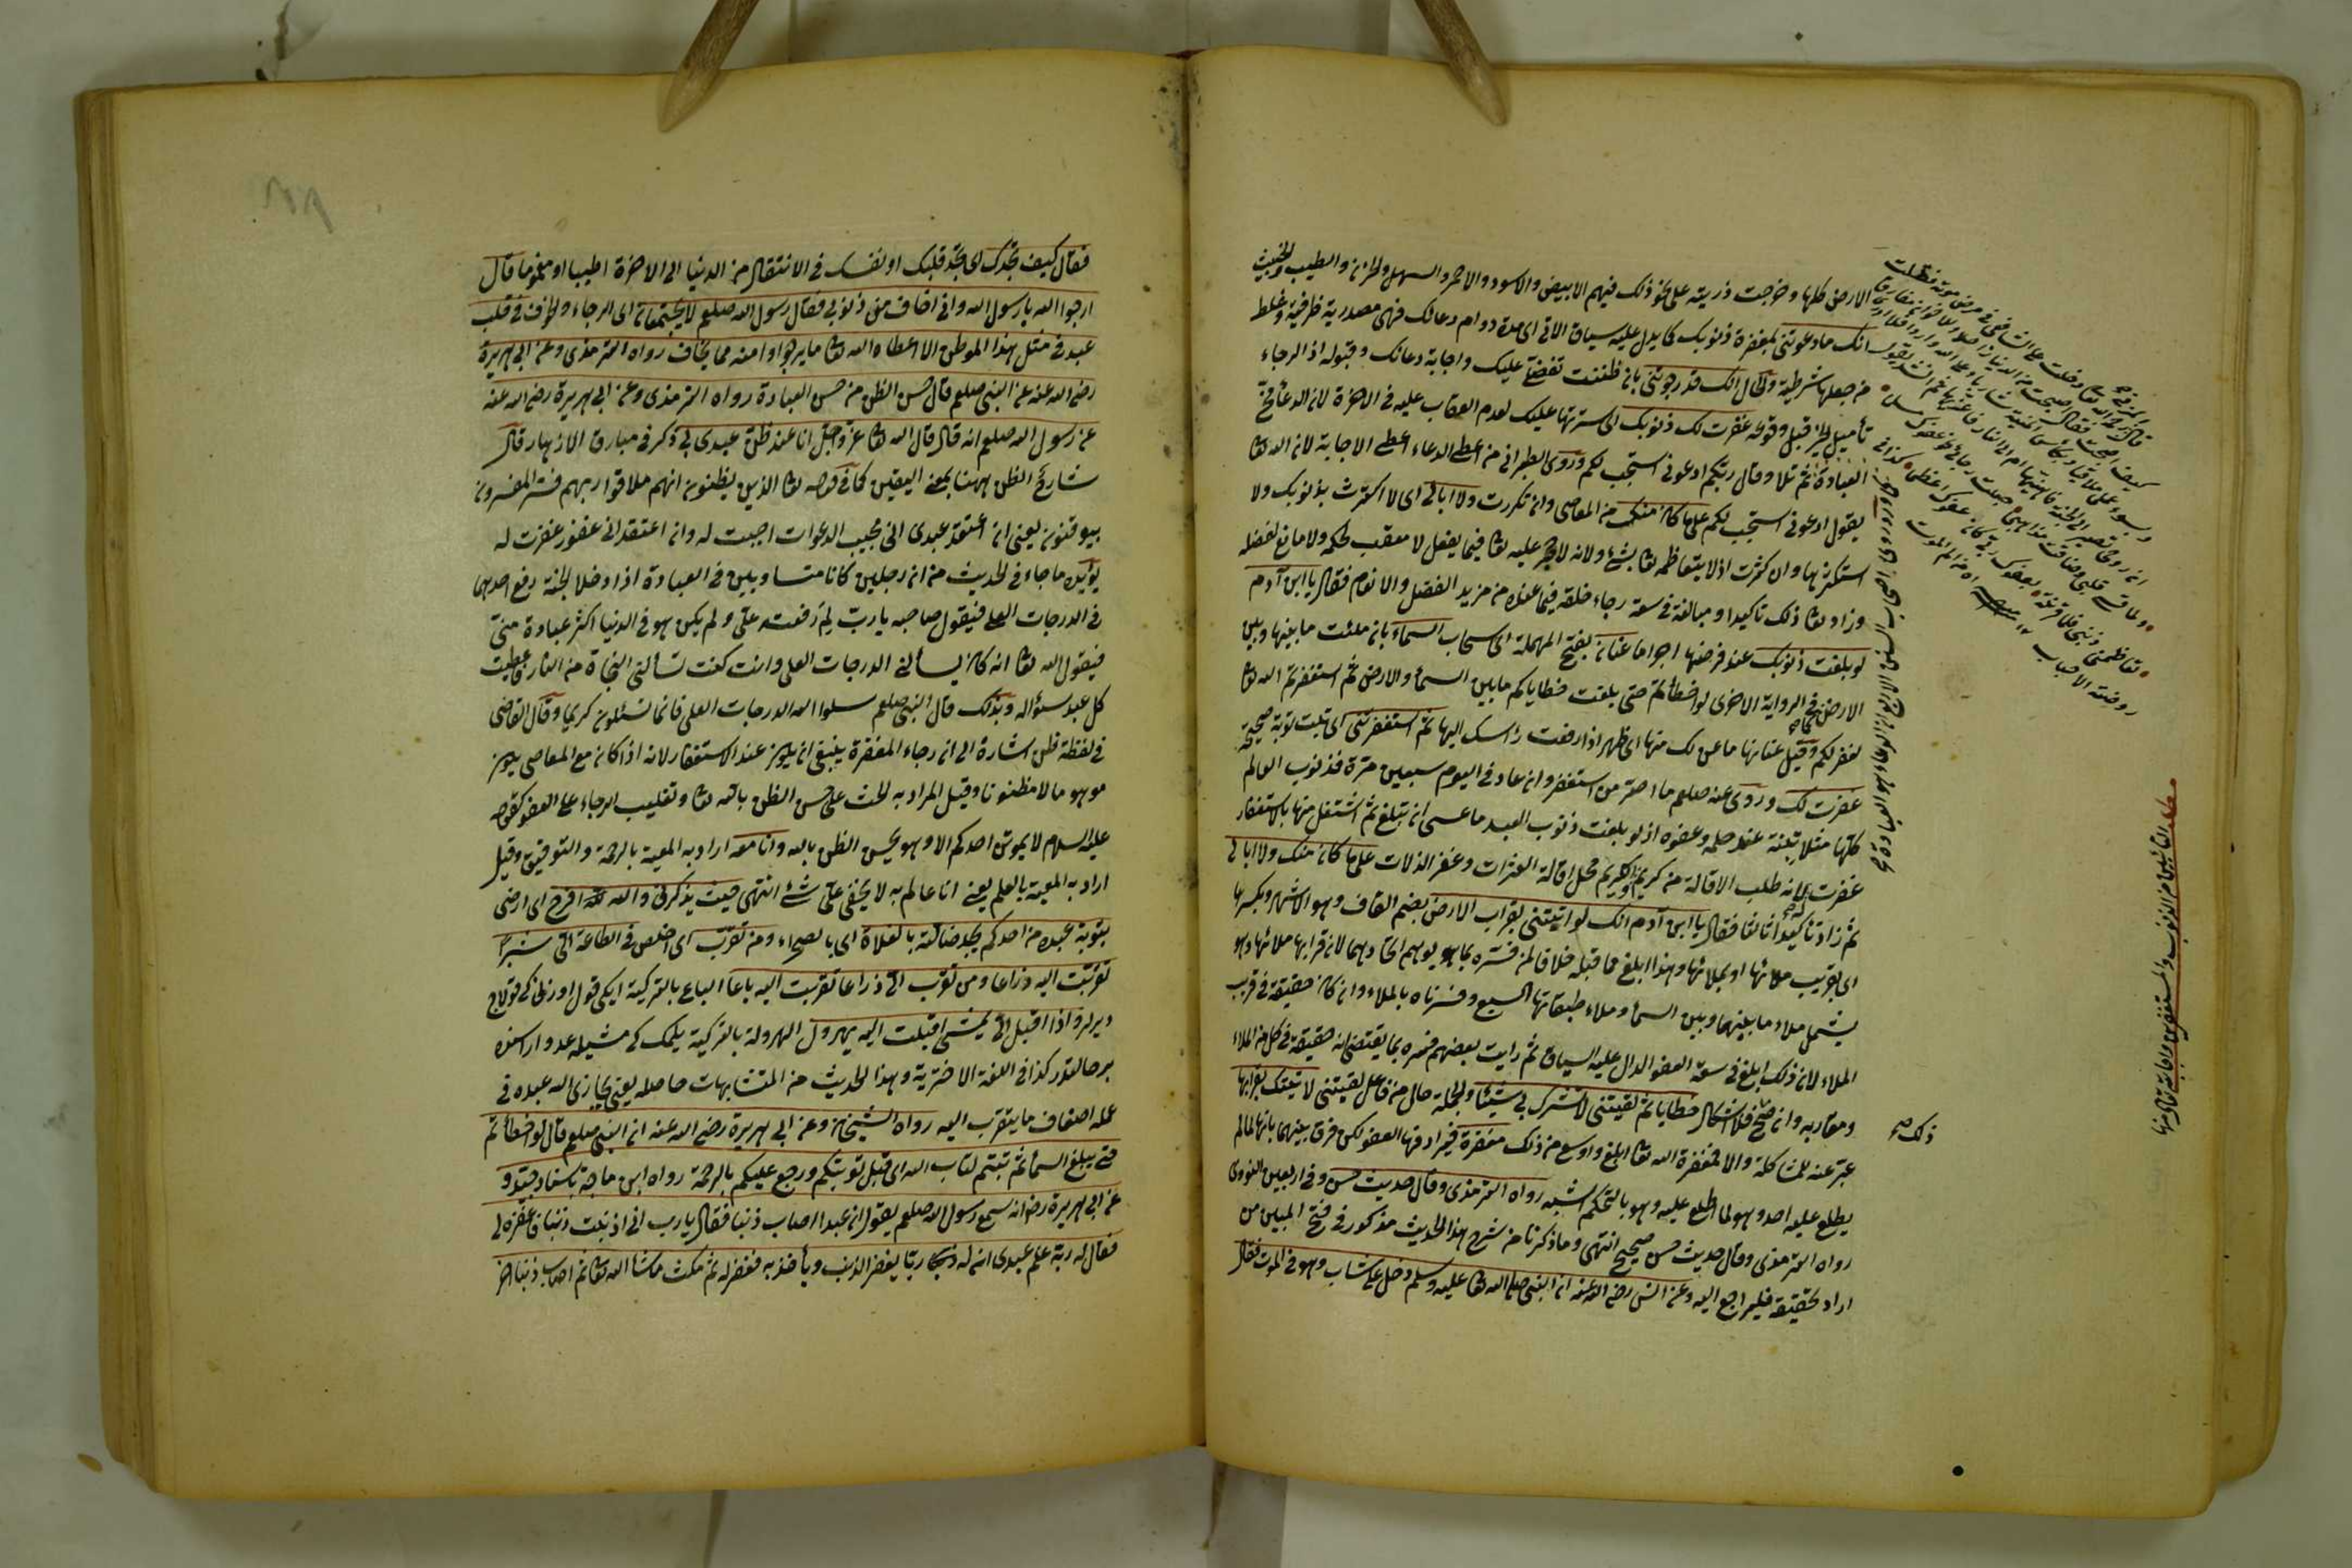 الارض كلها وخرجت ذريته على نحو ذلك فيهم الابيض والاسود والاحمر والسهل والحزن والطيب والخبيث
انك ما دعوتني بمغفرة ذنوبك كما يدل عليه سياق الاتي اى مدة دوام دعائك فهى مصدرية ظرفية وغلط
من جعلها شرطية والحال انك قد رجوتني بان ظننت تفضلي عليك واجابة دعائك وقبوله اذ الرجاء
تأميل الخير قبل وقوعه غفرت لك ذنوبك اى سترتها عليك لعدم العقاب عليه في الاخرة لان الدعاء مخ
العبادة ثم تلا وقال ربكم ادعوني استجب لكم وروى الطبراني من اعطى الدعاء اعطى الاجابة لان الله تعا
يقول ادعوني استجب لكم على ما كان منك من المعاصى وان تكررت ولا ابالى اى لا اكترث بذنوبك ولا
استكثرها وان كثرت اذ لا يتعاظمه تعا شئ ولانه لا حجر عليه تعا فيما يفعل لا معقب لحكمه ولا مانع لفضله
وزاد تعا ذلك تاكيدا ومبالغة في سعة رجاء خلقه فيما عنده من مزيد الفضل والانعام فقال يا ابن آدم
لو بلغت ذنوبك عند فرضها اجراما عنان بفتح المهملة اى سحاب السماء بان ملئت ما بينها وبين
الارض كما في الرواية الاخرى لو اخطأتم حتى بلغت خطاياكم ما بين السماء والارض ثم استغفرتم الله تعا
لغفر لكم وقيل عنانها ما عن لك منها اى ظهر اذا رفعت راسك اليها ثم استغفرتني اى تبت توبة صحيحة
غفرت لك وروى عنه صلعم ما اصر من استغفر وان عاد في اليوم سبعين مرة فذنوب العالم
كلها متلاشية عند حلمه وعفوه اذ لو بلغت ذنوب العبد ما عسى ان تبلغ ثم استقل منها بالاستغفار
غفرت لانه طلب الاقالة من كريم والكريم محل اقالة العثرات وغفر الذلات على ما كان منك ولا ابالى
ثم زاد تاكيدا ثالثا فقال يا ابن آدم انك لو اتيتني بقراب الارض بضم القاف وهو الاشهر وبكسرها
اى بقريب ملائها او بملائها وهذا ابلغ مما قبله خلافا لمن فسره بما هو يوهم اتحادهما لان قرابها ملائها وهو
يشمل ملاء ما بينهما وبين السماء وملاء طبقاتها السبع وفسرناه بالملاء وان كان حقيقة في قرب
الملاء لان ذلك ابلغ في سعة العفو الدال عليه السياق ثم رايت بعضهم فسره بما يقتضى انه حقيقة في كل من الملاء
ومقاربه وان صح فلا اشكال خطايا ثم لقيتني لا تشرك بي شيئا والجملة حال من فاعل لقيتني لاتيتك بقرابها
عبر عنه للمشاكلة والا فمغفرة الله تعا ابلغ واوسع من ذلك مغفرة فيرادفها العفو لكن فرق بينهما بانها لما لم
يطلع عليه احد وهو لما اطلع عليه وهو بالتحكم اشبه رواه الترمذى وقال حديث حسن وفي اربعين النووى
رواه الترمذى وقال حديث حسن صحيح انتهى وما ذكرنا من شرح هذا الحديث مذكور في فتح المبين من
اراد تحقيقه فليراجع اليه وعن انس رضى الله عنه ان النبي صلى الله تعا عليه وسلم دخل على شاب وهو في الموت فقال
ذلك صح
فقال كيف تجدك اى تجد قلبك او نفسك في الانتقال من الدنيا الى الاخرة اطيبا او مغموما قال
ارجوا الله يا رسول الله واني اخاف من ذنوبي فقال رسول الله صلعم لا يجتمعان اى الرجاء والخوف في قلب
عبد في مثل هذا الموطن الا اعطاه الله تعا ما يرجوا وامنه مما يخاف رواه الترمذى وعن ابي هريرة
رضى الله عنه عن النبي صلعم قال حسن الظن من حسن العبادة رواه الترمذى وعن ابي هريرة رضى الله عنه
عن رسول الله صلعم انه قال قال الله تعا عز وجل انا عند ظن عبدى بي ذكر في مبارق الازهار قال
شارح الظن ههنا بمعنى اليقين كما في قوله تعا الذين يظنون انهم ملاقوا ربهم فسر المفسرون
بيوقنون يعنى ان اعتقد عبدى انى مجيب الدعوات اجبت له وان اعتقد اني غفور غفرت له
يؤيده ما جاء في الحديث من ان رجلين كانا متساويين في العبادة اذا دخلا الجنة رفع احدهما
في الدرجات العلى فيقول صاحبه يا رب لم رفعته على ولم يكن هو في الدنيا اكثر عبادة منى
فيقول الله تعا انه كان يسألني الدرجات العلى وانت كنت تسألني النجاة من النار فاعطيت
كل عبد سؤاله وبذلك قال النبي صلعم سلوا الله الدرجات العلى فانما تسئلون كريما وقال القاضى
في لفظة ظن اشارة الى ان رجاء المغفرة ينبغى ان يكون عند الاستغفار لانه اذا كان مع المعاصى يكون
موهوما لا مظنونا وقيل المراد به الحث على حسن الظن بالله تعا وتغليب الرجاء على العفو كقوله
عليه السلام لا يموتن احدكم الا وهو يحسن الظن بالله وانا معه اراد به المعية بالرحمة والتوفيق وقيل
اراد به المعية بالعلم يعنى انا عالم به لا يخفى على شئ انتهى حيث يذكرني والله لله افرح اى ارضى
بتوبة عبده من احدكم يجد ضالته بالفلاة اى بالصحراء ومن تقرب اى اخلص في الطاعة الى شبرا
تقربت اليه ذراعا ومن تقرب الى ذراعا تقربت اليه باعا الباع بالتركية ايكى قول اوزنلغى كه قولاج
ديرلر واذا اقبل الى يمشى اقبلت اليه يهرول الهرولة بالتركية يلمك كه مشيله عدو اراسنده
بر حالتدر كذا في اللغة الاخترية وهذا الحديث من المتشابهات حاصله يعنى يجازى الله عبده في
عمله اضعاف ما يتقرب اليه رواه الشيخان وعن ابي هريرة رضى الله عنه ان النبي صلعم قال لو اخطأتم
حتى يبلغ السماء ثم تبتم لتاب الله اى قبل توبتكم ورجع عليكم بالرحمة رواه ابن ماجة باسناد جيد و
عن ابي هريرة رض انه سمع رسول الله صلعم يقول ان عبدا اصاب ذنبا فقال يا رب اني اذنبت ذنبا فاغفره لى
فقال له ربه علم عبدى ان له ربا يغفر الذنب ويأخذ به فغفر له ثم مكث ما شاء الله تعا ثم اصاب ذنبا اخر